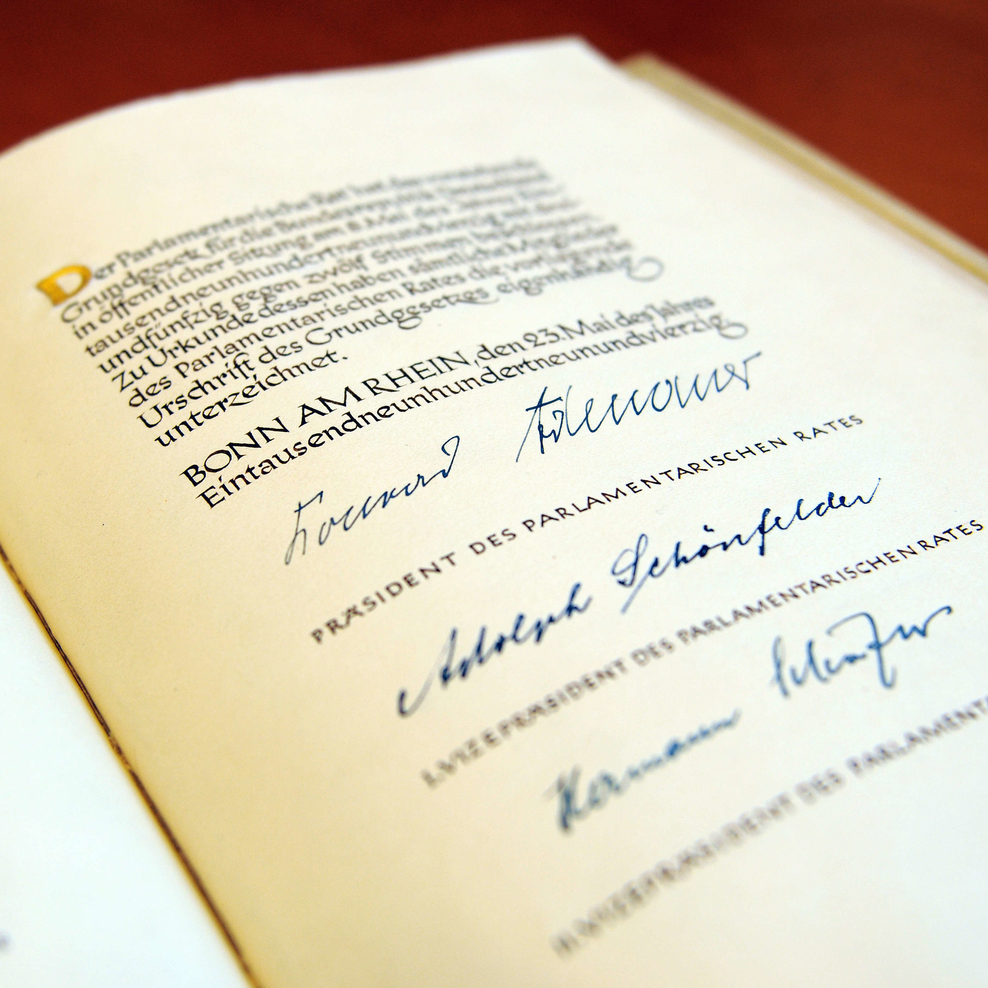 Der Parlamentarische Rat hat das vorstehende
Grundgesetz für die Bundesrepublik Deutschland
in öffentlicher Sitzung am 8. Mai des Jahres Ein-
tausendneunhundertneunundvierzig mit drei-
undfünfzig gegen zwölf Stimmen beschlossen.
Zu Urkunde dessen haben sämtliche Mitglieder
des Parlamentarischen Rates die vorliegende
Urschrift des Grundgesetzes eigenhändig
unterzeichnet.
BONN AM RHEIN, den 23. Mai des Jahres
Eintausendneunhundertneunundvierzig.
Konrad Adenauer
PRÆSIDENT DES PARLAMENTARISCHEN RATES
Adolph Schönfelder
I. VIZEPRÆSIDENT DES PARLAMENTARISCHEN RATES
Hermann Schäfer
II. VIZEPRÆSIDENT DES PARLAMENTA